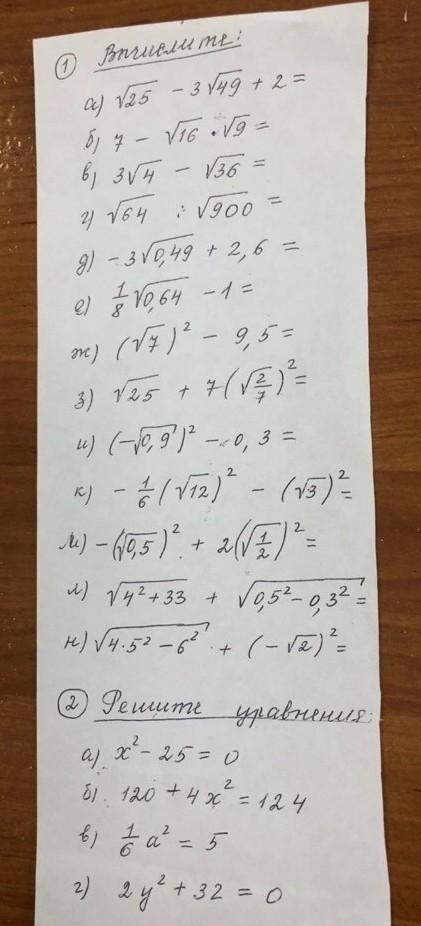 1 Вычислите:
а) √25 - 3√49 + 2 =
б) 7 - √16 · √9 =
в) 3√4 - √36 =
г) √64 : √900 =
д) -3√0,49 + 2,6 =
е) 1/8 √0,64 - 1 =
ж) (√7)² - 9,5 =
з) √25 + 7(√2/7)² =
и) (-√0,9)² - 0,3 =
к) -1/6 (√12)² - (√3)² =
м) -(√0,5)² + 2(√1/2)² =
л) √4²+33 + √0,5²-0,3² =
н) √4·5²-6² + (-√2)² =
2 Решите уравнения:
а) x² - 25 = 0
б) 120 + 4x² = 124
в) 1/6 a² = 5
г) 2y² + 32 = 0